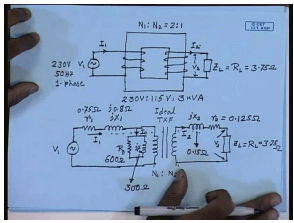 N₁ : N₂ = 2:1
I₁
230V
50Hz
1-phase
V₁
V₂
Z_L = R_L = 3.75Ω
230V:115V, 3 kVA
0.75Ω
r₁
j0.8Ω
jX₁
Ideal
TXF
jX₂
r₂ = 0.125Ω
I₁
I₂
V₁
R₀
600Ω
0.15Ω
V₂
Z_L=R_L=3.75Ω
300Ω
N₁ : N₂